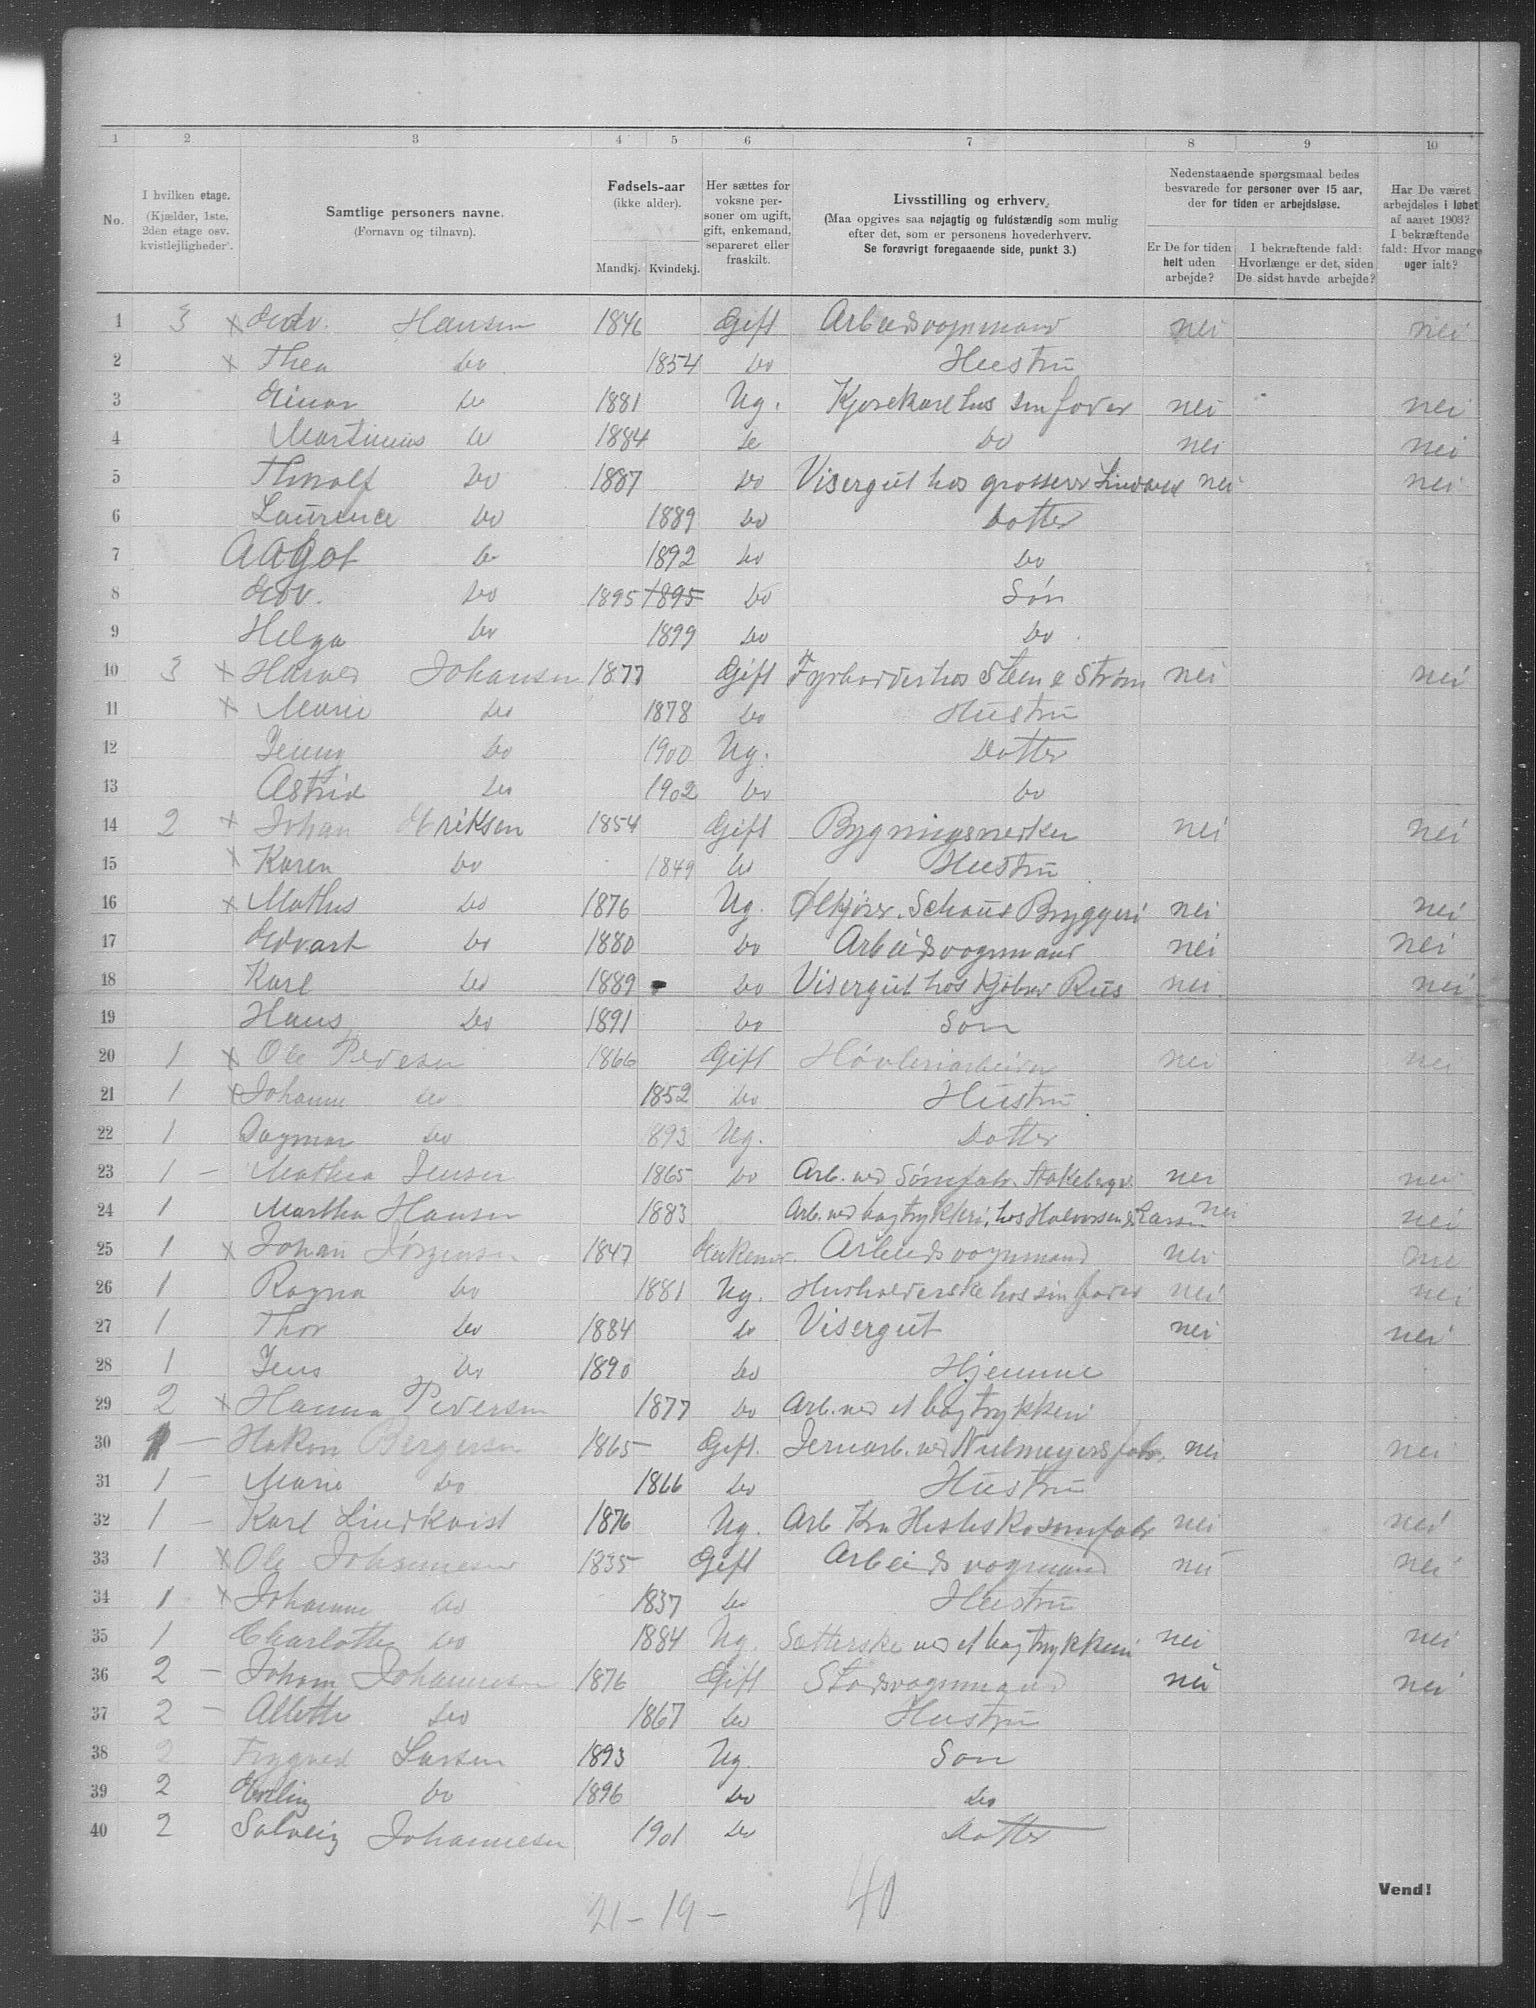 1 2 3 4 5 6 7 8 9 10
No.
I hvilken etage. (Kjælder, 1ste, 2den etage osv. kvistlejligheder).
Samtlige personers navne. (Fornavn og tilnavn).
Fødsels-aar (ikke alder). Mandkj. Kvindekj.
Her sættes for voksne personer om ugift, gift, enkemand, separeret eller fraskilt.
Livsstilling og erhverv. (Maa opgives saa nøjagtig og fuldstændig som mulig efter det, som er personens hovederhverv. Se forøvrigt foregaaende side, punkt 3.)
Nedenstaaende spørgsmaal bedes besvarede for personer over 15 aar, der for tiden er arbejdsløse.
Er De for tiden helt uden arbejde?
I bekræftende fald: Hvorlænge er det, siden De sidst havde arbejde?
Har De været arbejdsløs i løbet af aaret 1903? I bekræftende fald: Hvor mange uger ialt?
1 3 x Edv. Hansen 1846 Gift Arbeidsvognmand nei nei
2 x Thea Do 1854 Do Hustru
3 Einar Do 1881 Ug. Kjørekarl hos sin fader nei nei
4 Martinius Do 1884 Do Do nei nei
5 Thorolf Do 1887 Do Visergut hos grosserer nei nei
6 Laurence Do 1889 Do Dotter
7 Aagot Do 1892 Do Do
8 Edv. Do 1895 1895 Do Søn
9 Helga Do 1899 Do Do
10 3 x Harald Johansen 1877 Gift Fyrbøder hos Steen & Strøm nei nei
11 x Marie Do 1878 Do Hustru
12 Jenny Do 1900 Ug. Dotter
13 Astrid Do 1902 Do Do
14 2 x Johan Eriksen 1854 Gift Bygningssnedker nei nei
15 x Karen Do 1849 Do Hustru
16 x Mathis Do 1876 Ug. Ølkjører. Schous Bryggeri nei nei
17 Edvart Do 1880 Do Arbeidsvognmand nei nei
18 Karl Do 1889 Do Visergut hos Kjøbm Rus nei nei
19 Hans Do 1891 Do Søn
20 1 x Ole Pedersen 1866 Gift Høvleriarbeider nei nei
21 1 x Johanne Do 1852 Do Hustru
22 1 Dagmar Do 893 Ug. Dotter
23 1 — Mathea Jensen 1865 Do Arb. ved Sømfabr. nei nei
24 1 Martha Hansen 1883 Arb. ved bogtrykkeri, hos Halvorsen & Larsen nei nei
25 1 x Johan Jørgensen 1847 Enkem. Arbeidsvognmand nei nei
26 1 Ragna Do 1881 Ug. Husholderske hos sin fader nei nei
27 1 Thor Do 1884 Do Visergut nei nei
28 1 Jens Do 1890 Do Hjemme
29 2 x Hanna Pedersen 1877 Do Arb. ved et bogtrykkeri
30 1 — Hakon Bergersen 1865 Gift. Jernarb. ved fabr. nei nei
31 1 — Marie Do 1866 Do Hustru
32 1 — Karl Lindkvist 1876 Ug. Arb Kra Hesteskosømfabr nei nei
33 1 x Ole Johannesen 1835 Gift Arbeidsvognmand nei nei
34 1 x Johanne Do 1837 Do Hustru
35 1 Charlotte Do 1884 Ug. Sætterske ved et bogtrykkeri nei nei
36 2 — Johan Johannesen 1876 Gift Stadsvognmand nei nei
37 2 — Allette Do 1867 Do Hustru
38 2 Trygved Larsen 1893 Ug. Søn
39 2 Erling Do 1896 Do Do
40 2 Solveig Johannesen 1901 Do Dotter
21 — 19 — 40
Vend!